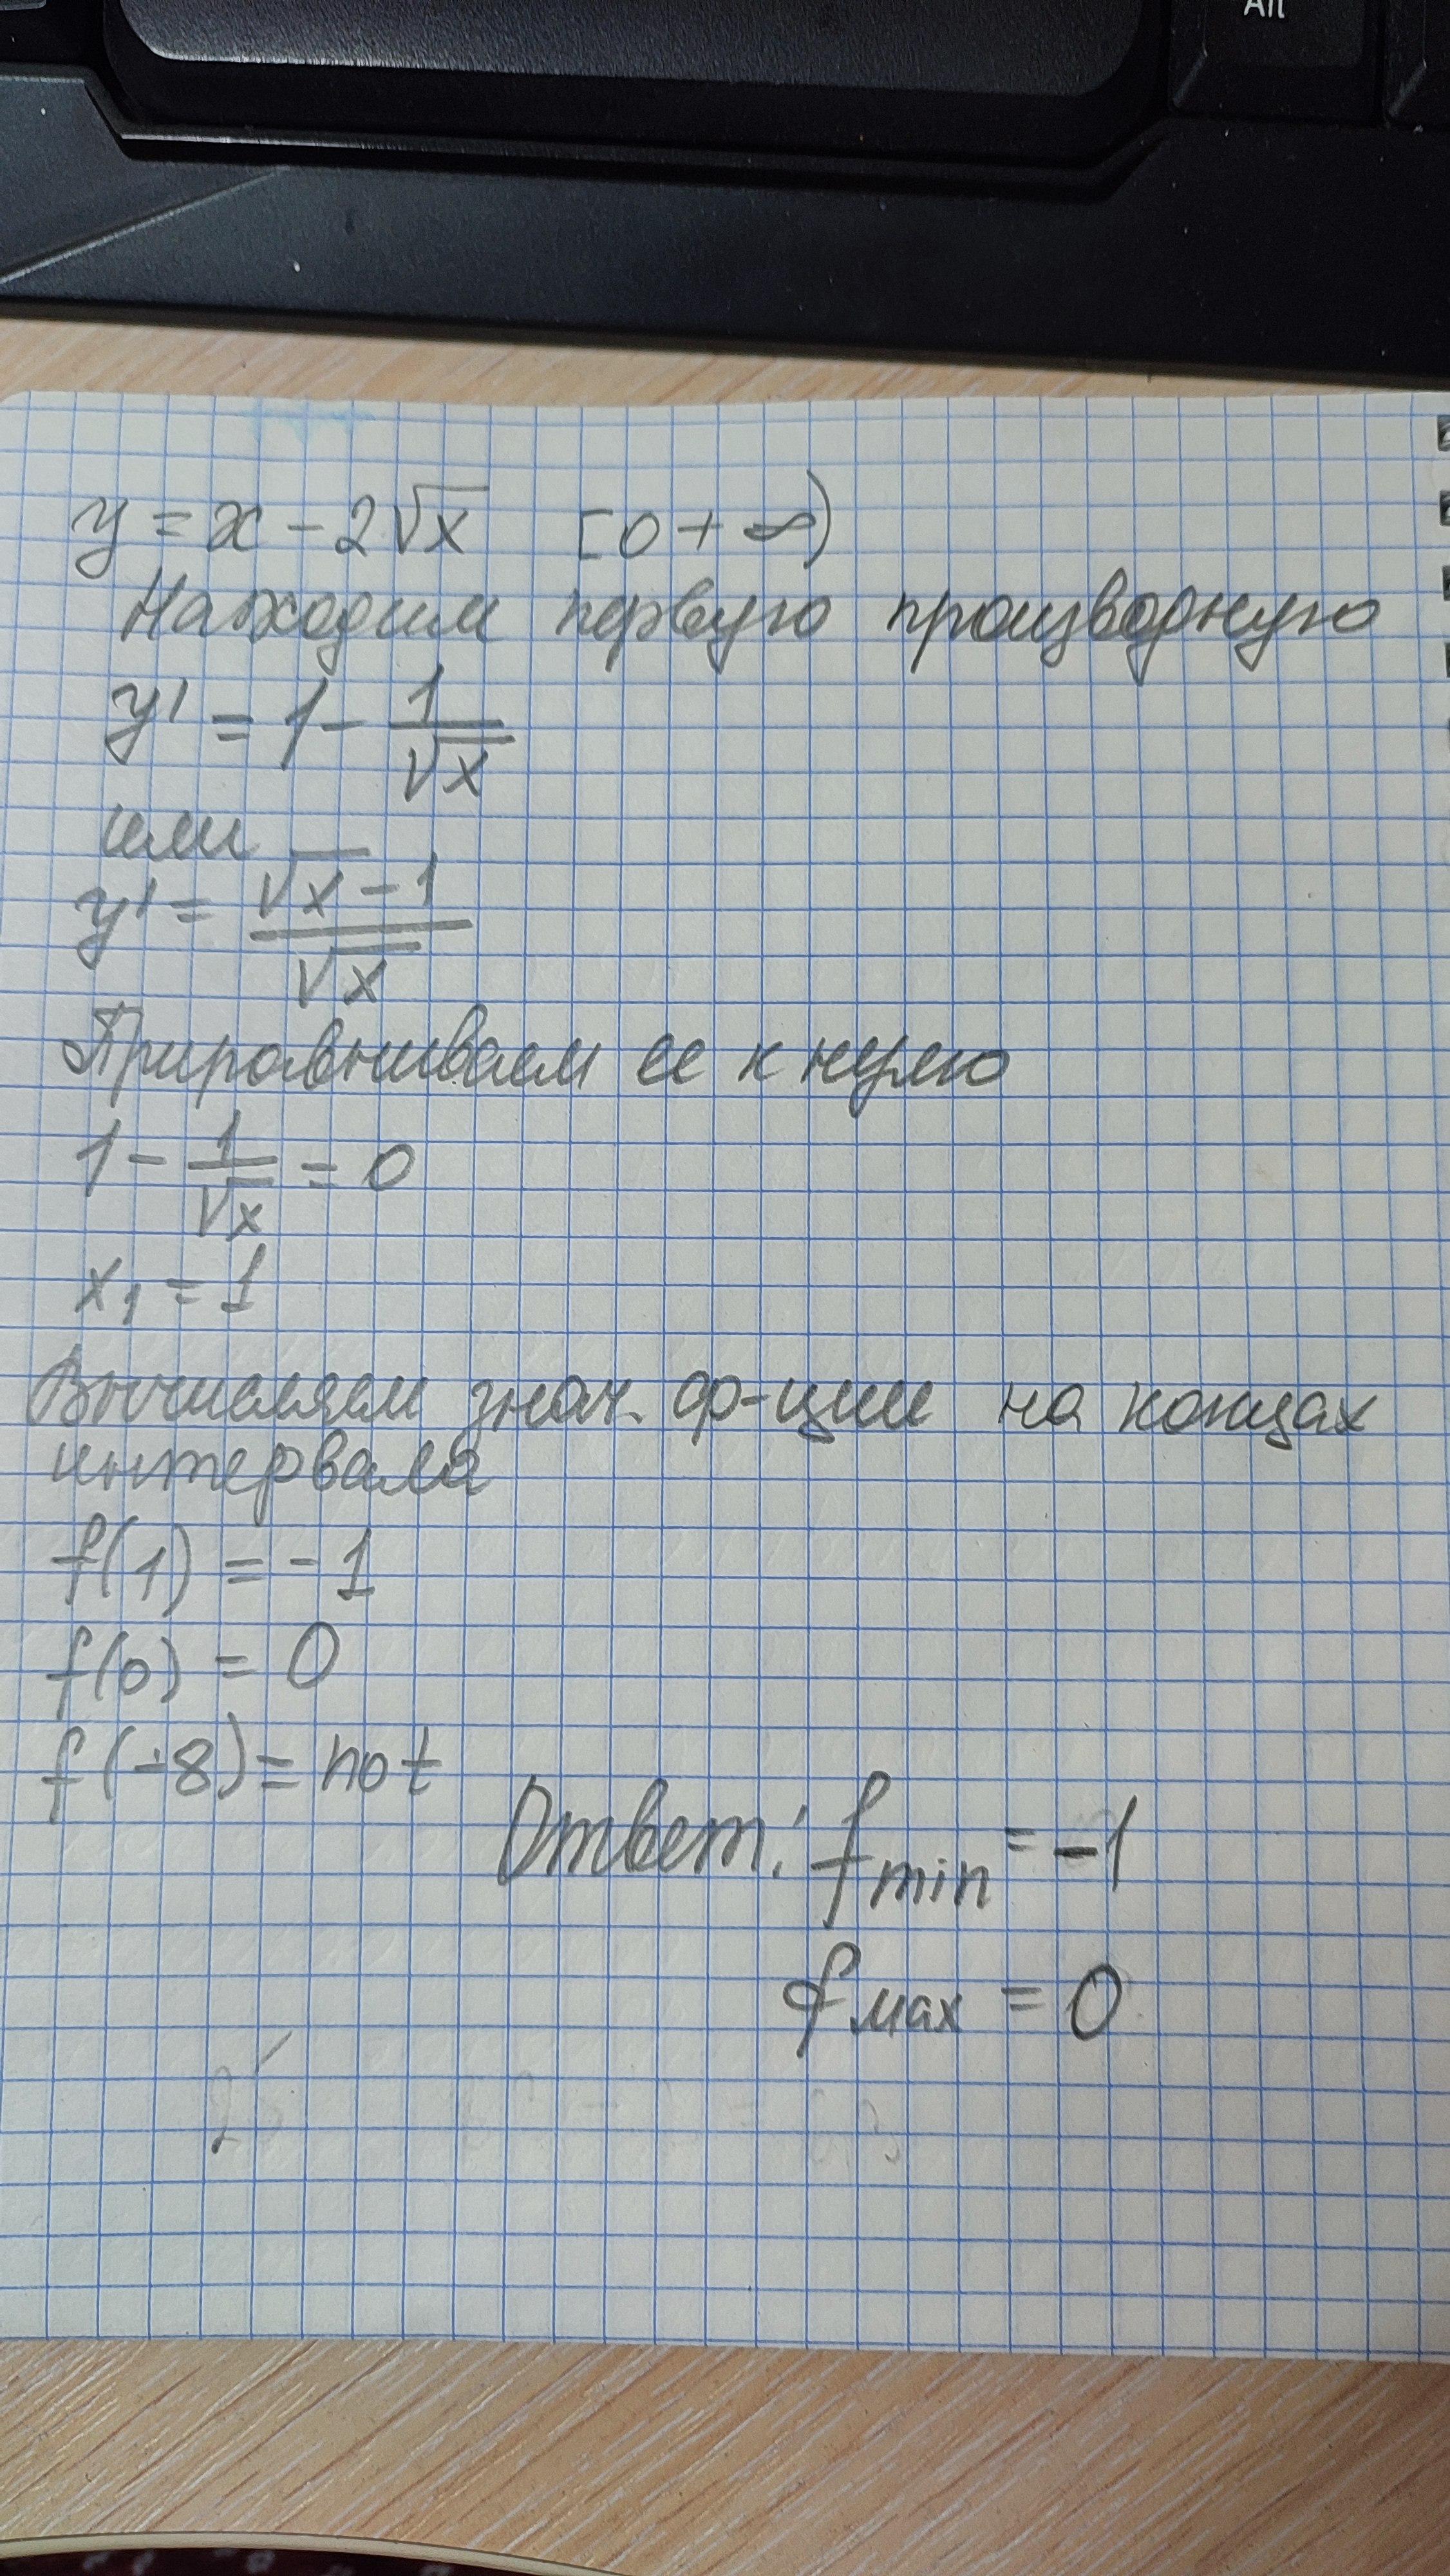 Alt
y = x - 2√x [0 + ∞)
Находим первую производную
y' = 1 - 1/√x
или
y' = (√x - 1)/√x
Приравниваем ее к нулю
1 - 1/√x = 0
x₁ = 1
Вычисляем знач. ф-ции на концах
интервала
f(1) = -1
f(0) = 0
f(+8) = not
Ответ: f min = -1
f max = 0